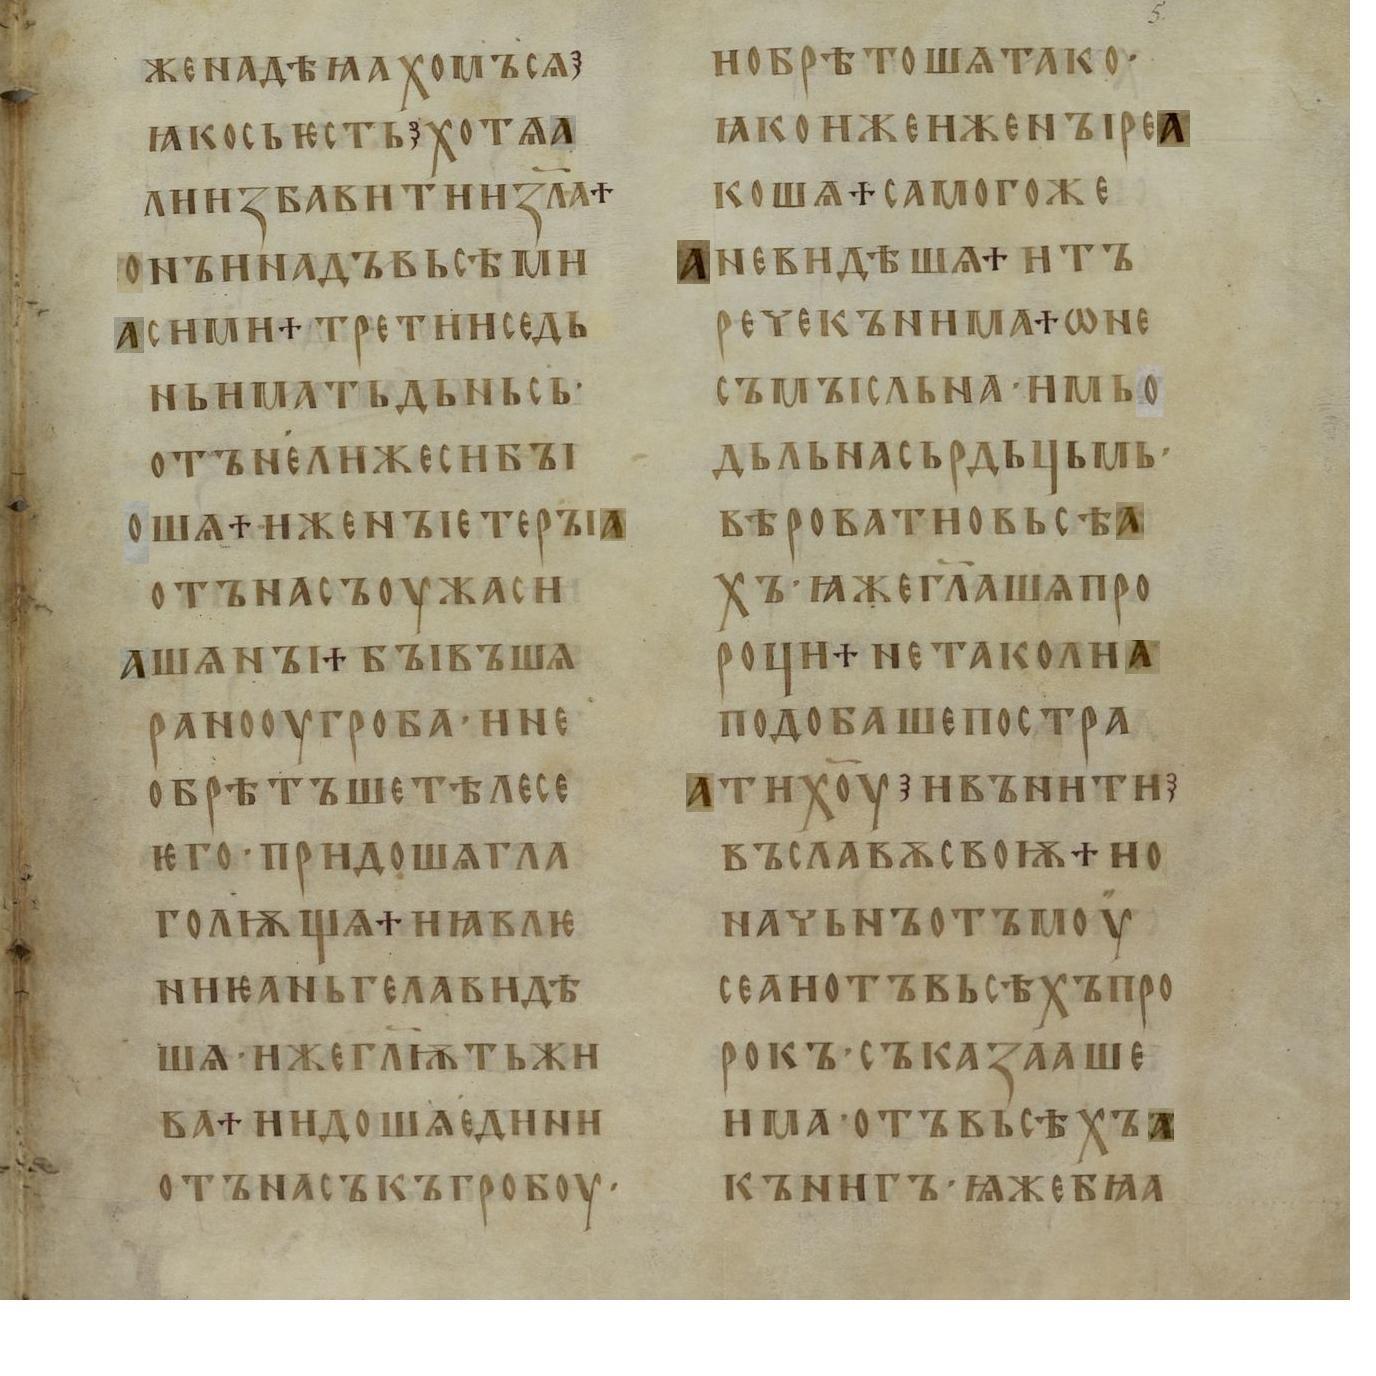 5.
женадѣꙗахомъсѧ~
ꙗкосьѥсть~хотѧа
лииꙁбавитииꙁл҃а+
онъинадъвьсѣми
асими+третиіседь
ньиматьдьньсь·
отън́елижесибꙑ
ошѧ+иженꙑетерꙑа
отънасъоужаси
ашѧнꙑ+бꙑвъшѧ
ранооугроба·ине
обрѣтъшетѣлесе
ѥго·придошѧгла
голѭщѧ+иꙗвлѥ
ниѥаньгелавидѣ
шѧ·ижегл҃ѭтьжи
ва+иидошѧединии
отънасъкъгробоу·
иобрѣтошѧтако·
ꙗкоижеиженꙑреа
кошѧ+самогоже
аневидѣшѧ+итъ
речекънима+ѡне
съмꙑсльна·имьо
дьльнасьрдьцьмь·
вѣроватиовьсѣа
хъ·ꙗжегл҃ашѧпро
роци+нетаколиа
подобашепостра
атих҃оу~ивънити~
въславѫсвоѭ+ио
начьнъотъмоу
сеаиотъвьсѣхъпро
рокъ·съкаꙁааше
има·отъвьсѣхъа
кънигъ·ꙗжебѣа